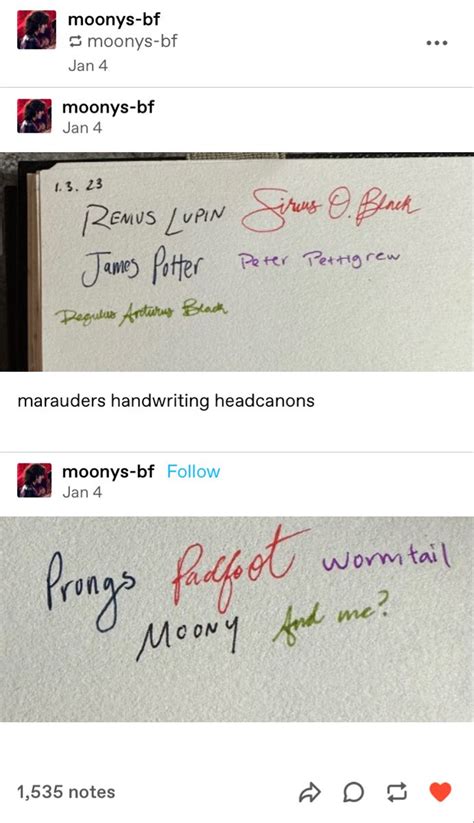 moonys-bf
moonys-bf
Jan 4
moonys-bf
Jan 4
1.3.23
REMUS LUPIN Sirius O. Black
James Potter Peter Pettigrew
Regulus Arcturus Black
marauders handwriting headcanons
moonys-bf Follow
Jan 4
Prongs Padfoot wormtail
MOONY And me?
1,535 notes